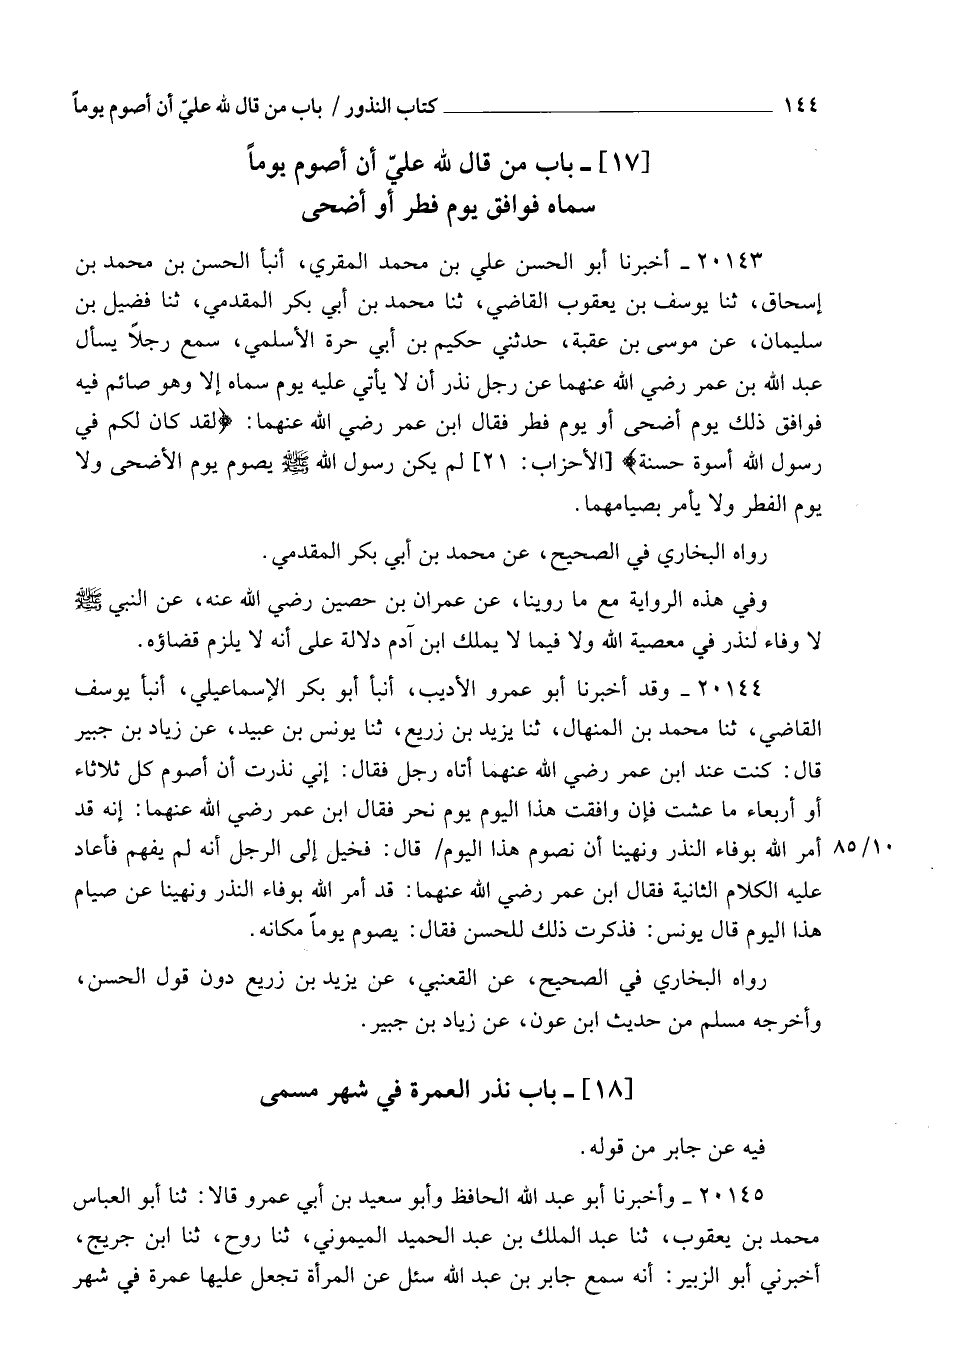 ١٤٤ ــــــــــــــــــــ كتاب النذور / باب من قال لله عليّ أن أصوم يوماً
[١٧] ـ باب من قال لله عليّ أن أصوم يوماً
سماه فوافق يوم فطر أو أضحى
٢٠١٤٣ ـ أخبرنا أبو الحسن علي بن محمد المقري، أنبأ الحسن بن محمد بن
إسحاق، ثنا يوسف بن يعقوب القاضي، ثنا محمد بن أبي بكر المقدمي، ثنا فضيل بن
سليمان، عن موسى بن عقبة، حدثني حكيم بن أبي حرة الأسلمي، سمع رجلاً يسأل
عبد الله بن عمر رضي الله عنهما عن رجل نذر أن لا يأتي عليه يوم سماه إلا وهو صائم فيه
فوافق ذلك يوم أضحى أو يوم فطر فقال ابن عمر رضي الله عنهما: ﴿لقد كان لكم في
رسول الله أسوة حسنة﴾ [الأحزاب: ٢١] لم يكن رسول الله ﷺ يصوم يوم الأضحى ولا
يوم الفطر ولا يأمر بصيامهما.
رواه البخاري في الصحيح، عن محمد بن أبي بكر المقدمي.
وفي هذه الرواية مع ما روينا، عن عمران بن حصين رضي الله عنه، عن النبي ﷺ
لا وفاء لنذر في معصية الله ولا فيما لا يملك ابن آدم دلالة على أنه لا يلزم قضاؤه.
٢٠١٤٤ ـ وقد أخبرنا أبو عمرو الأديب، أنبأ أبو بكر الإسماعيلي، أنبأ يوسف
القاضي، ثنا محمد بن المنهال، ثنا يزيد بن زريع، ثنا يونس بن عبيد، عن زياد بن جبير
قال: كنت عند ابن عمر رضي الله عنهما أتاه رجل فقال: إني نذرت أن أصوم كل ثلاثاء
أو أربعاء ما عشت فإن وافقت هذا اليوم يوم نحر فقال ابن عمر رضي الله عنهما: إنه قد
٨٥/١٠ أمر الله بوفاء النذر ونهينا أن نصوم هذا اليوم/ قال: فخيل إلى الرجل أنه لم يفهم فأعاد
عليه الكلام الثانية فقال ابن عمر رضي الله عنهما: قد أمر الله بوفاء النذر ونهينا عن صيام
هذا اليوم قال يونس: فذكرت ذلك للحسن فقال: يصوم يوماً مكانه.
رواه البخاري في الصحيح، عن القعنبي، عن يزيد بن زريع دون قول الحسن،
وأخرجه مسلم من حديث ابن عون، عن زياد بن جبير.
[١٨] ـ باب نذر العمرة في شهر مسمى
فيه عن جابر من قوله.
٢٠١٤٥ ـ وأخبرنا أبو عبد الله الحافظ وأبو سعيد بن أبي عمرو قالا: ثنا أبو العباس
محمد بن يعقوب، ثنا عبد الملك بن عبد الحميد الميموني، ثنا روح، ثنا ابن جريج،
أخبرني أبو الزبير: أنه سمع جابر بن عبد الله سئل عن المرأة تجعل عليها عمرة في شهر